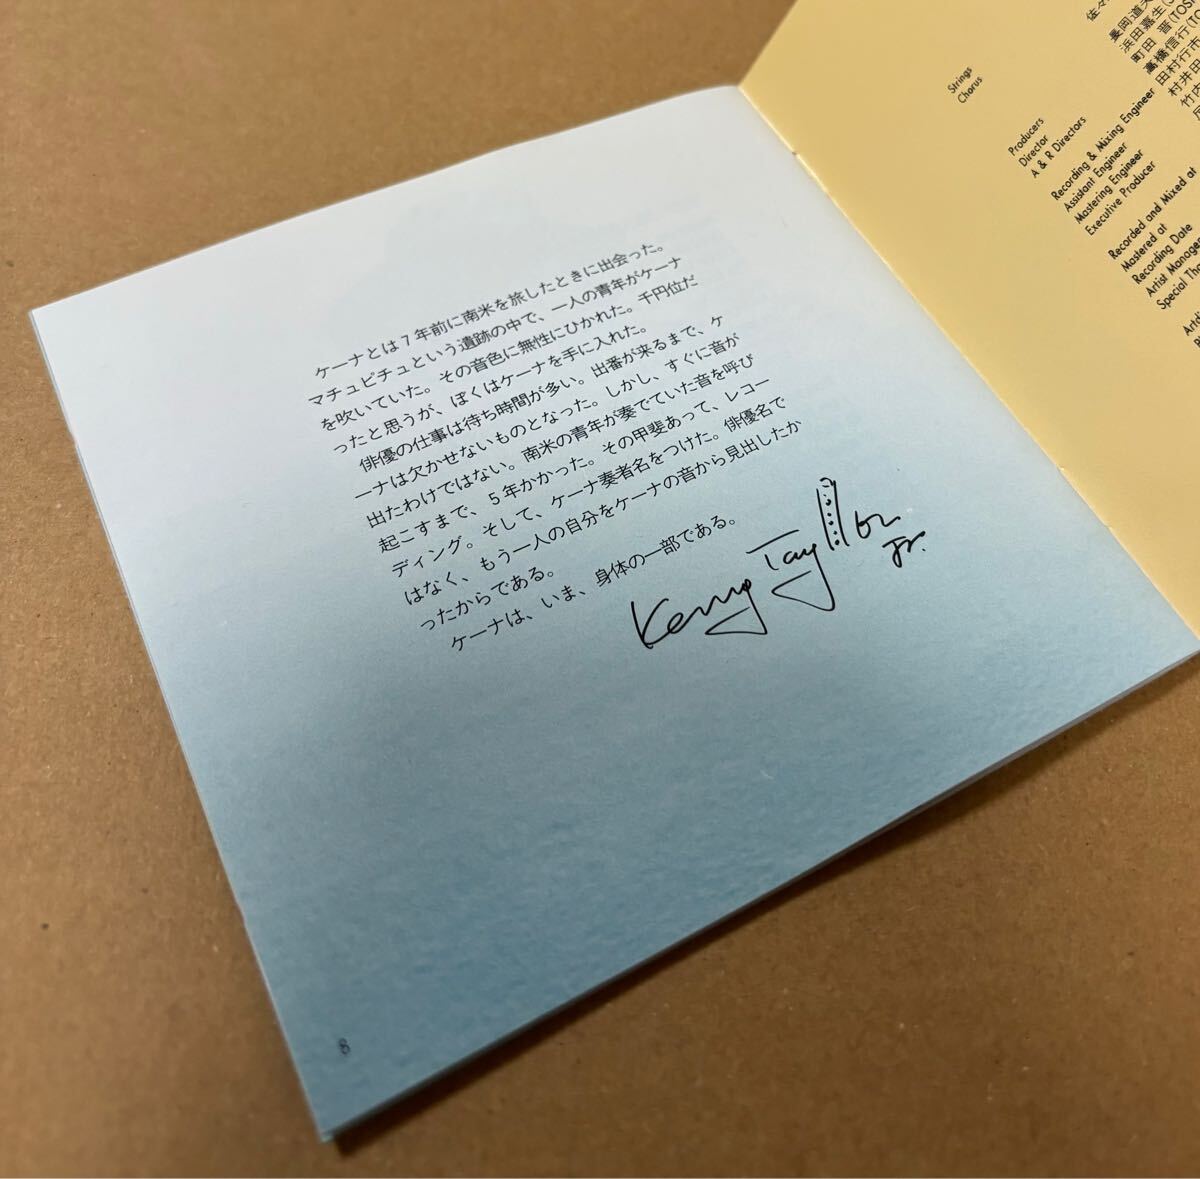 ケーナとは7年前に南米を旅したときに出会った。
マチュピチュという遺跡の中で、一人の青年がケーナ
を吹いていた。その音色に無性にひかれた。千円位だ
ったと思うが、ぼくはケーナを手に入れた。
俳優の仕事は待ち時間が多い。出番が来るまで、ケ
ーナは欠かせないものとなった。しかし、すぐに音が
出たわけではない。南米の青年が奏でていた音を呼び
起こすまで、5年かかった。その甲斐あって、レコー
ディング。そして、ケーナ奏者名をつけた。俳優名で
はなく、もう一人の自分をケーナの音から見出したか
ったからである。
ケーナは、いま、身体の一部である。
Jr.
8
佐々
長岡道夫
浜田嘉生
町田 晋(TOS
高橋信行(TO
田村行市
村井田
竹内
Strings
Chorus
Producers
Director
A & R Directors
Recording & Mixing Engineer
Assistant Engineer
Mastering Engineer
Executive Producer
Recorded and Mixed at
Mastered at
Recording Date
Artist Manage
Special Tha